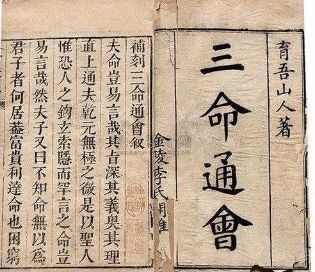 育吾山人著
三命通會
金陵 氏
補刻三命通會叙
夫命豈易言哉其旨深其義奥其理
直上通夫乾元無極之微是以聖人
惟恐人之鉤玄索隱而罕言之命豈
易言哉然夫子又曰不知命無以為
君子者何居蓋富貴利達命也困窮